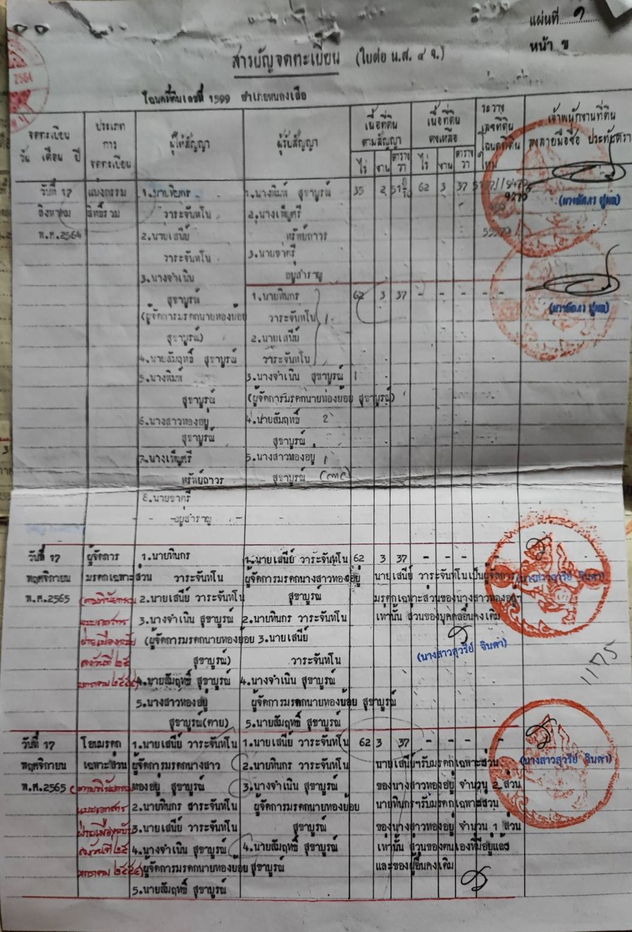 แผ่นที่ ๑
หน้า ข
สารบัญจดทะเบียน (ใบต่อ น.ส. ๔ จ.)
โฉนดที่ดินเลขที่ 1599 อำเภอหนองเสือ
จดทะเบียน
วัน เดือน ปี
ประเภท
การ
จดทะเบียน
ผู้ให้สัญญา
ผู้รับสัญญา
เนื้อที่ดิน
ตามสัญญา
ไร่ งาน ตารางวา
เนื้อที่ดิน
คงเหลือ
ไร่ งาน ตารางวา
ระวาง
เลขที่ดิน
โฉนดที่ดิน
ใหม่
เจ้าพนักงานที่ดิน
ลงลายมือชื่อ ประทับตรา
วันที่ 17
สิงหาคม
พ.ศ.2564
แบ่งกรรม
สิทธิ์รวม
1.นายทินกร
วาระจันทโน
2.นายเสนีย์
วาระจันทโน
3.นางจำเนิน
สุขาบูรณ์
(ผู้จัดการมรดกนายทองย้อย
สุขาบูรณ์)
4.นายสัมฤทธิ์ สุขาบูรณ์
5.นางพิมพ์
สุขาบูรณ์
6.นางสาวทองอยู่
สุขาบูรณ์
7.นางเพ็ญศรี
ทรัพย์ถาวร
8.นายชาศรี
อยู่สำราญ
1.นางพิมพ์ สุขาบูรณ์
2.นางเพ็ญศรี
ทรัพย์ถาวร
3.นายชาศรี
อยู่สำราญ
35 2
62 3 37
1.นายทินกร
วาระจันทโน
2.นายเสนีย์
วาระจันทโน
3.นางจำเนิน สุขาบูรณ์ 1
(ผู้จัดการมรดกนายทองย้อย สุขาบูรณ์)
4.นายสัมฤทธิ์ 2
สุขาบูรณ์
5.นางสาวทองอยู่ 1
สุขาบูรณ์
62 3 37 - - - -
วันที่ 17
พฤศจิกายน
พ.ศ.2565
ผู้จัดการ
มรดกเฉพาะส่วน
1.นายทินกร
วาระจันทโน
2.นายเสนีย์ วาระจันทโน
3.นางจำเนิน สุขาบูรณ์
(ผู้จัดการมรดกนายทองย้อย
สุขาบูรณ์)
4.นายสัมฤทธิ์ สุขาบูรณ์
5.นางสาวทองอยู่
สุขาบูรณ์(ตาย)
1.นายเสนีย์ วาระจันทโน
ผู้จัดการมรดกนางสาวทองอยู่
สุขาบูรณ์
2.นายทินกร วาระจันทโน
3.นายเสนีย์
วาระจันทโน
4.นางจำเนิน สุขาบูรณ์
ผู้จัดการมรดกนายทองย้อย สุขาบูรณ์
5.นายสัมฤทธิ์ สุขาบูรณ์
62 3 37 - - - -
นายเสนีย์ วาระจันทโนเป็นผู้จัดการ
มรดกเฉพาะส่วนของนางสาวทองอยู่
เท่านั้น ส่วนของบุคคลอื่นคงเดิม
(นางสาวสุวรีย์ จินดา)
(นางสาวสุวรีย์ จินดา)
1175
วันที่ 17
พฤศจิกายน
พ.ศ.2565
โอนมรดก
เฉพาะส่วน
1.นายเสนีย์ วาระจันทโน
ผู้จัดการมรดกนางสาว
ทองอยู่ สุขาบูรณ์
3.นายเสนีย์ วาระจันทโน
4.นางจำเนิน สุขาบูรณ์
ผู้จัดการมรดกนายทองย้อย สุขาบูรณ์
5.นายสัมฤทธิ์ สุขาบูรณ์
1.นายเสนีย์ วาระจันทโน
2.นายทินกร วาระจันทโน
3.นางจำเนิน สุขาบูรณ์
ผู้จัดการมรดกนายทองย้อย
สุขาบูรณ์
4.นายสัมฤทธิ์ สุขาบูรณ์
62 3 37 - - - -
นายเสนีย์ฯรับมรดกเฉพาะส่วน
ของนางสาวทองอยู่ จำนวน 2 ส่วน
นายทินกรฯรับมรดกเฉพาะส่วน
ของนางสาวทองอยู่ จำนวน 1 ส่วน
เท่านั้น ส่วนของตนเองที่มีอยู่และ
และของผู้อื่นคงเดิม
(นางสาวสุวรีย์ จินดา)